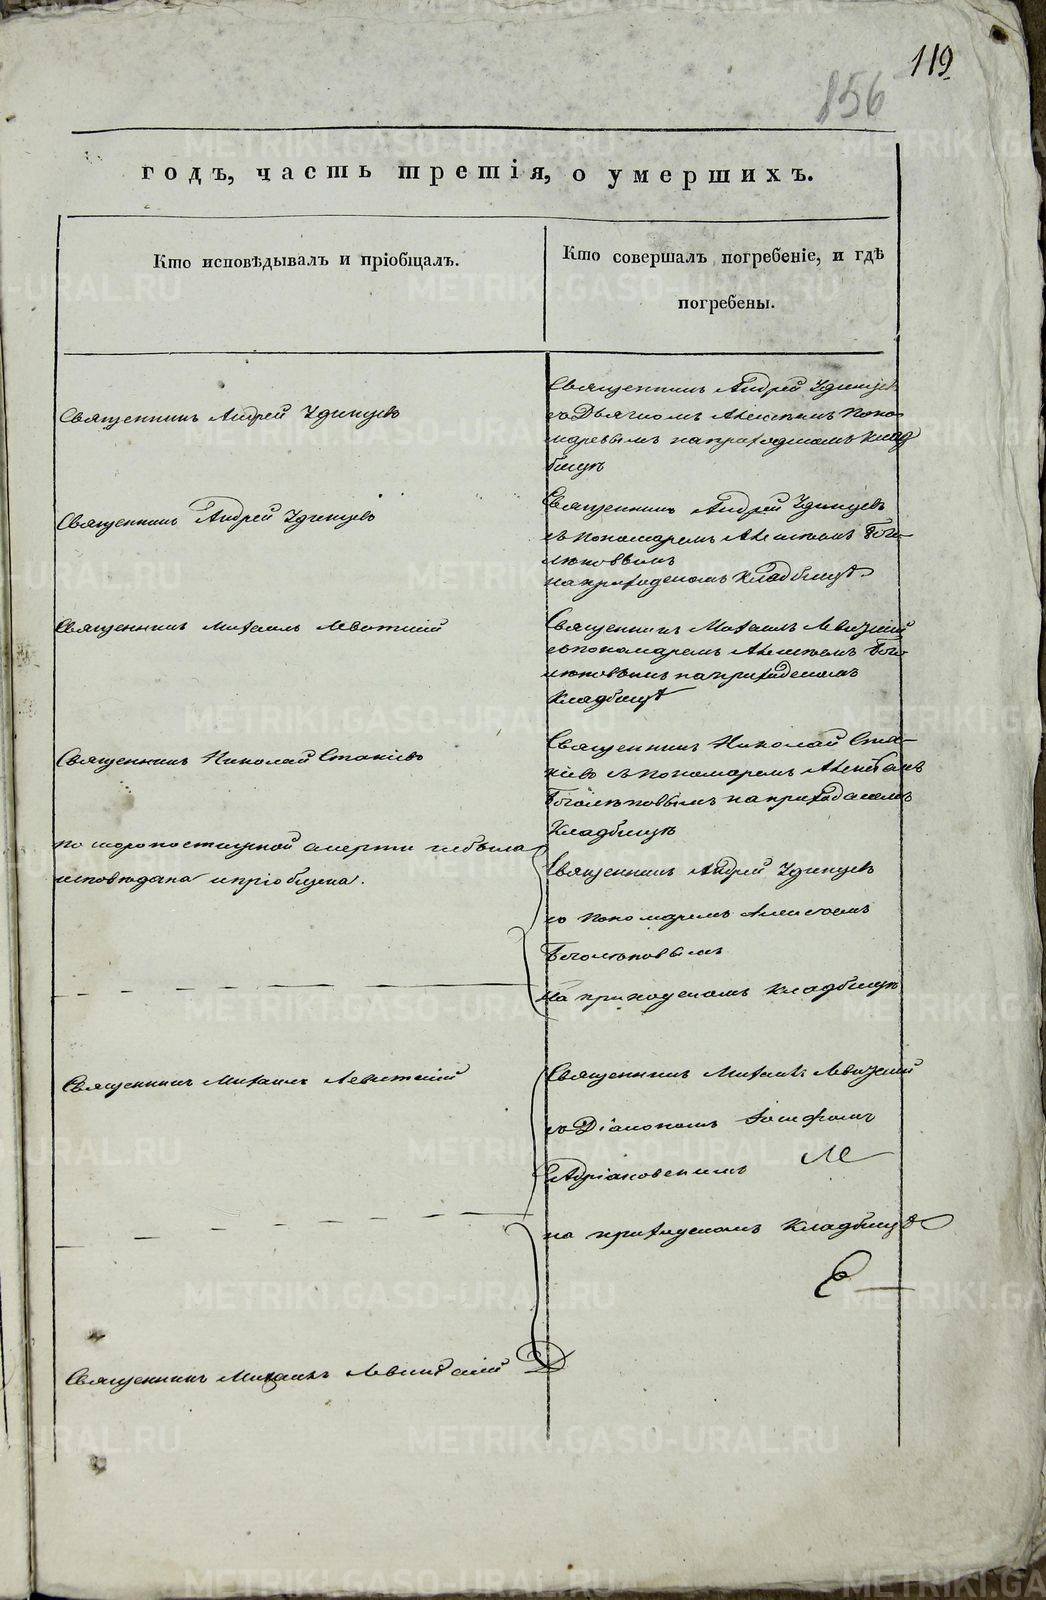 119
856
годъ, часть третія, о умершихъ.
Кто исповѣдывалъ и пріобщалъ.
Кто совершалъ погребеніе, и гдѣ
погребены.
Священникъ Андрей Удинцевъ
Священникъ Андрей Удинцев
съ Дьячкомъ Алексѣемъ Поно-
маревымъ на приходскомъ клад
бищѣ
Священникъ Андрей Удинцевъ
Священникъ Андрей Удинцевъ
съ пономаремъ Алексѣемъ Бого-
лѣповымъ
на приходскомъ кладбищѣ
Священникъ Михаилъ Левитскій
Священникъ Михаилъ Левитскій
съ пономаремъ Алексѣемъ Бого
лѣповымъ на приходскомъ
кладбищѣ
Священникъ Николай Стахіевъ
Священникъ Николай Ста-
хіевъ съ пономаремъ Алексѣемъ
Боголѣповымъ на приходскомъ
кладбищѣ
по скоропостижной смерти небыла
исповѣдана и пріобщена.
Священникъ Андрей Удинцевъ
съ пономаремъ Алексѣемъ
Боголѣповымъ
на приходскомъ кладбищѣ
Священникъ Михаилъ Левитскій
Священникъ Михаилъ Левитскій
съ Діакономъ Іосифомъ
Адріановскимъ
на приходскомъ кладбищѣ
Священникъ Михаилъ Левитскій
METRIKI.GASO-URAL.RU